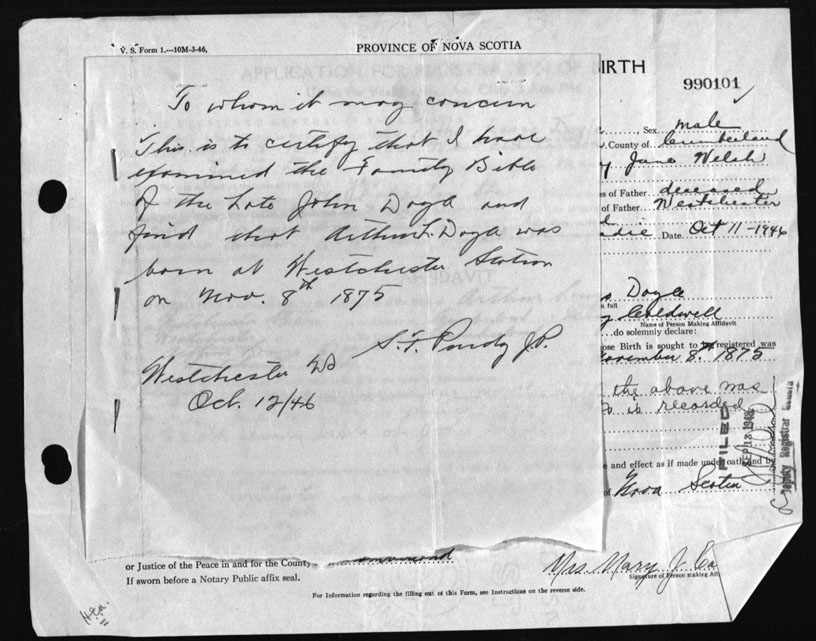 V. S. Form 1.—10M-3-46.
PROVINCE OF NOVA SCOTIA
BIRTH
990101
To whom it may concern
This is to certify that I have
examined the Family Bible
of the late John Doyle and
find that Arthur L. Doyle was
born at Westchester Station
on Nov. 8th 1875
S. T. Purdy J.P.
Westchester NS
Oct. 12/46
Sex male
County of Cumberland
Jane Welsh
of Father deceased
of Father Westchester
Date Oct 11-1946
Doyle
full
Caldwell
Name of Person Making Affidavit
do solemnly declare:
ose Birth is sought to be registered was
November 8th 1875
the above was
is recorded
FILED
SEP 13 1948
Deputy Registrar
e and effect as if made under oath and by
of Nova Scotia
or Justice of the Peace in and for the County
If sworn before a Notary Public affix seal.
Mrs Mary J. Ca
Signature of Person making Aff
For Information regarding the filling out of this Form, see Instructions on the reverse side.